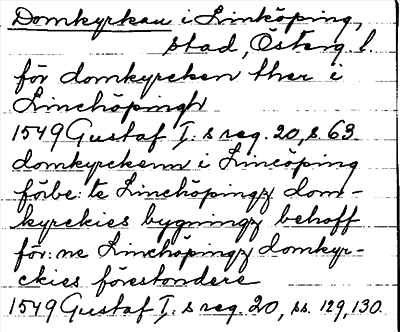 Domkyrkan i Linköping,
stad, Österg. l.
för domkyrcken ther i
Linchöpingh
1549 Gustaf I: s reg. 20, s 63.
domkyrckenn i Lincöping
förbe: te Linchöpingz dom-
kyrckies bygningz behoff
för: ne Linchöpingz domkyr-
ckies förestondere
1549 Gustaf I: s reg. 20, ss. 129, 130.